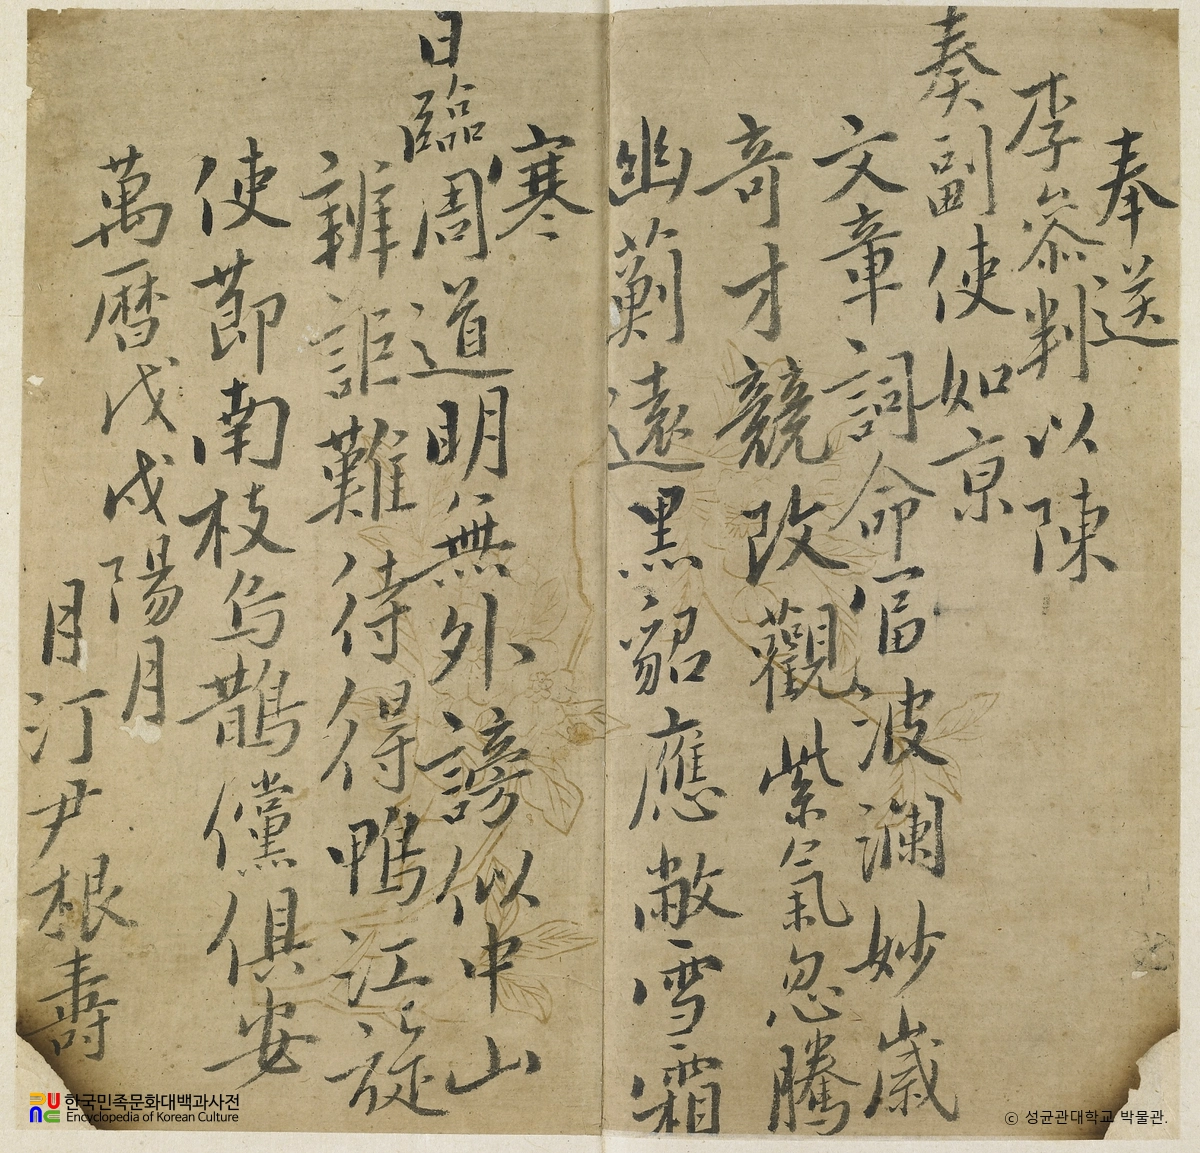 奉送
李叅判以陳
奏副使如京
文章詞命富波瀾妙歲
奇才競改觀紫氣忽騰
幽薊遠黑貂應敝雪霜
寒
日臨周道明無外謗似中山
辨詎難待得鴨江旋
使節南枝烏鵲儻俱安
萬曆戊戌陽月
月汀尹根壽
한국민족문화대백과사전
Encyclopedia of Korean Culture
ⓒ 성균관대학교 박물관.